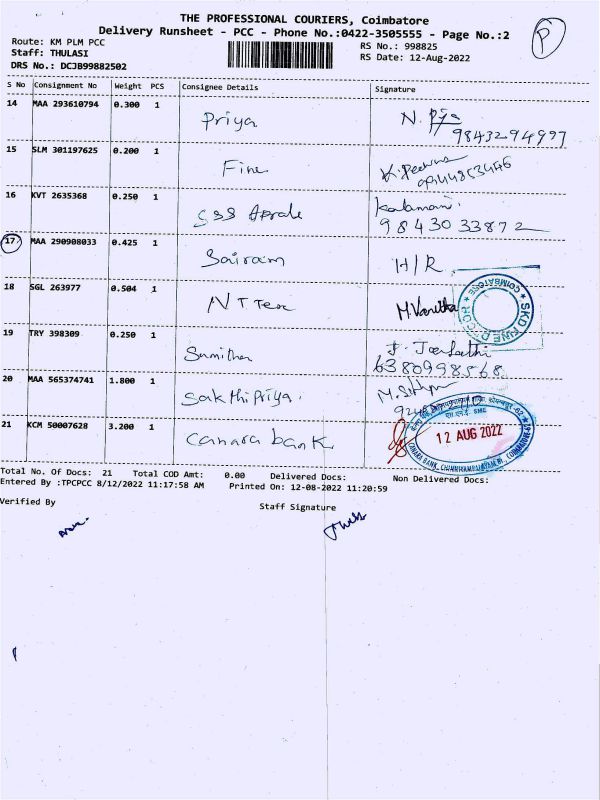 THE PROFESSIONAL COURIERS, Coimbatore
Delivery Runsheet - PCC - Phone No.:0422-3505555 - Page No.:2
P
Route: KM PLM PCC
Staff: THULASI
DRS No.: DCJB99882502
RS No.: 998825
RS Date: 12-Aug-2022
S No Consignment No Weight PCS Consignee Details Signature
14 MAA 293610794 0.300 1 Priya N.
9843294997
15 SLM 301197625 0.200 1 Fine
09444853446
16 KVT 2635368 0.250 1 Kalamani
9843033872
17 MAA 290908033 0.425 1 Sairam H/R
18 SGL 263977 0.504 1 NT Tex M. Vanitha
COIMBATORE
19 TRY 398309 0.250 1 Sumitha J.
6380998568
20 MAA 565374741 1.800 1 Sakthipriya. M.
21 KCM 50007628 3.200 1 Canara bank
SME
12 AUG 2022
CANARA BANK,
Total No. Of Docs: 21 Total COD Amt: 0.00 Delivered Docs: Non Delivered Docs:
Entered By :TPCPCC 8/12/2022 11:17:58 AM Printed On: 12-08-2022 11:20:59
Verified By Staff Signature